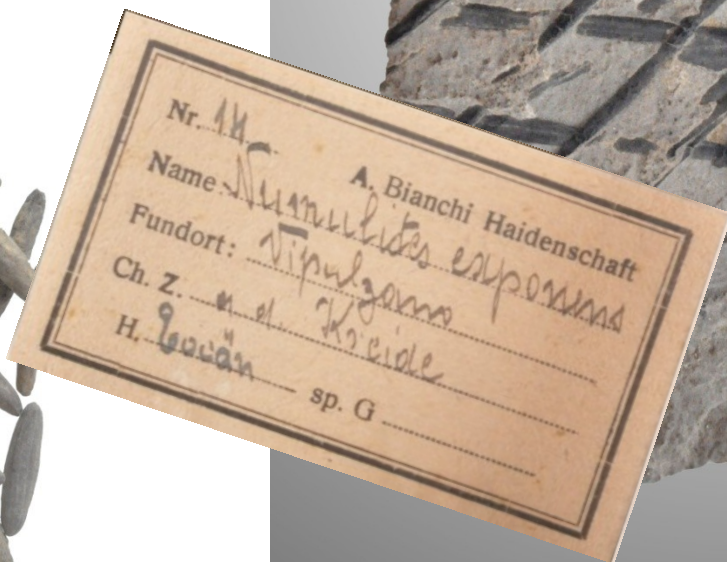 Nr. 14
A. Bianchi Haidenschaft
Name: Numulites exponens
Fundort: Vipulzano
Ch. Z. n. d. Kreide
H. Eocän sp. G